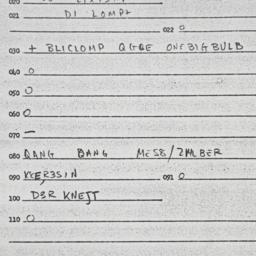 020
021 DI LOMPA
022 0
030 + BLICLOMP QGQE ONE BIG BULB
040 0
050 0
060 0
070 —
080 BANG BANG MESB/
090 091 0
100 DER KNEJT
110 0